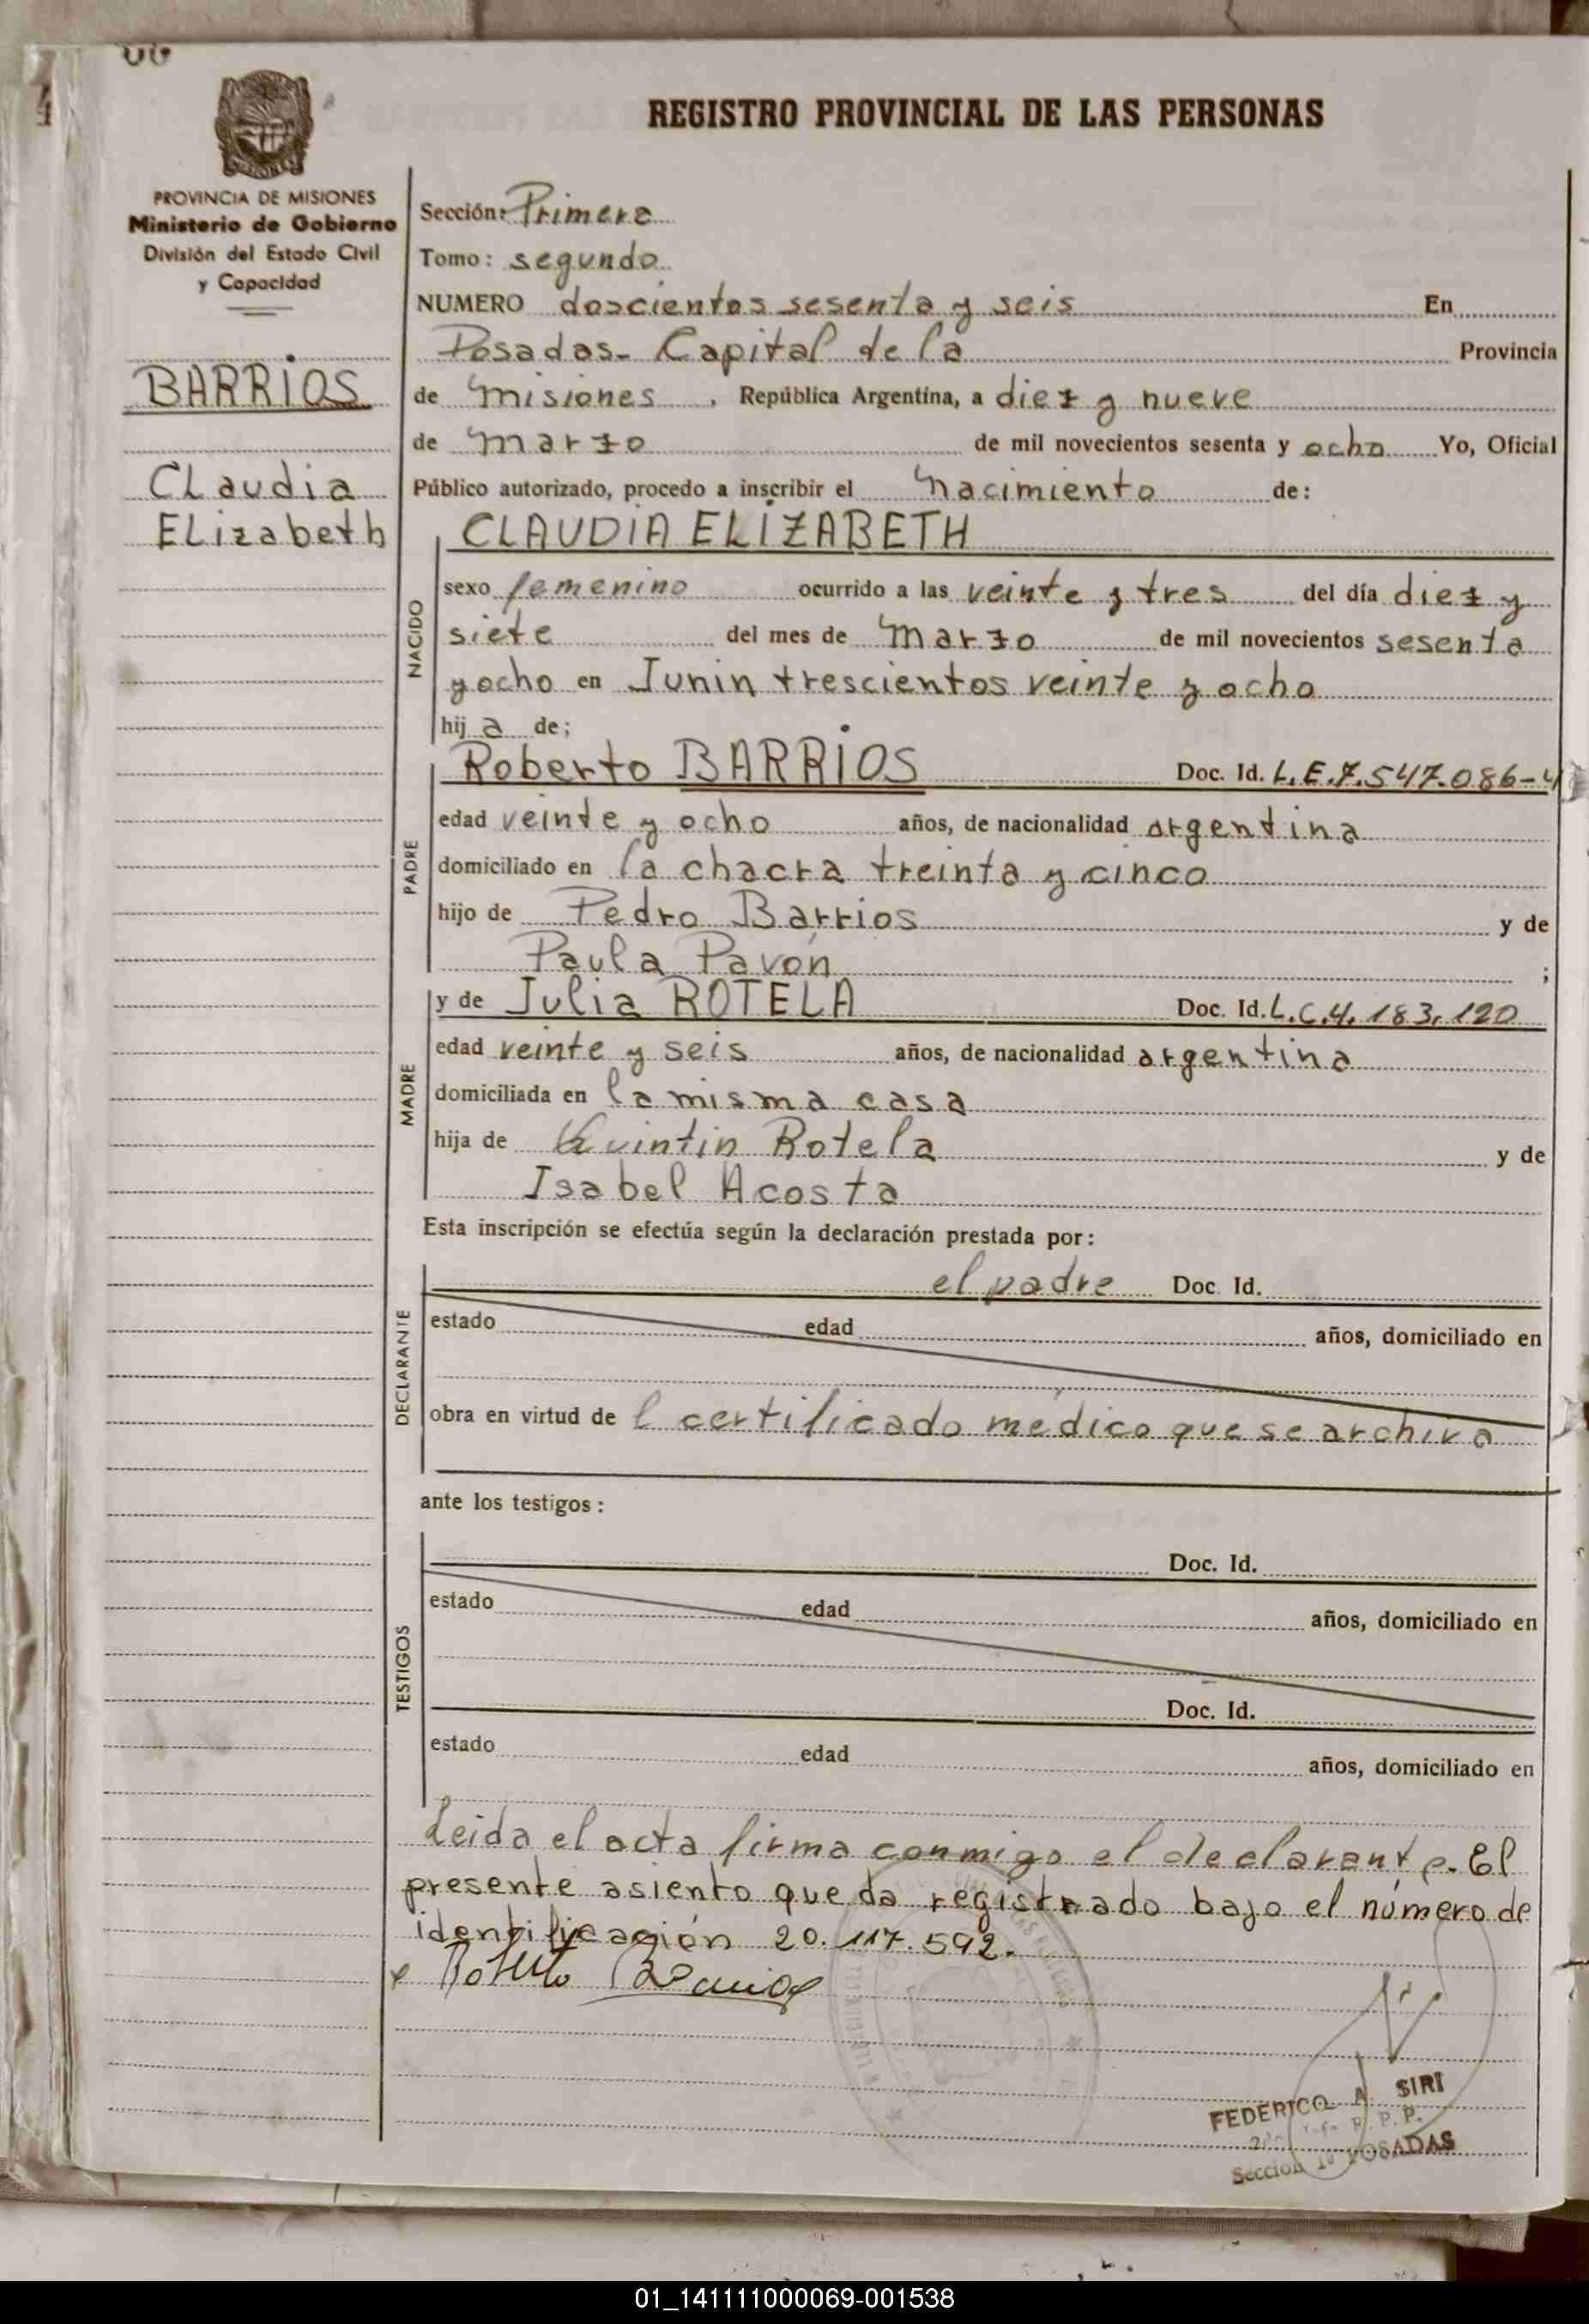 REGISTRO PROVINCIAL DE LAS PERSONAS
PROVINCIA DE MISIONES
Ministerio de Gobierno
División del Estado Civil
y Capacidad
BARRIOS
Claudia
Elizabeth
Sección: Primera
Tomo: segundo
NUMERO doscientos sesenta y seis En
Posadas - Capital de la Provincia
de misiones, República Argentina, a diez y nueve
de marzo de mil novecientos sesenta y ocho Yo, Oficial
Público autorizado, procedo a inscribir el nacimiento de:
CLAUDIA ELIZABETH
NACIDO
sexo femenino ocurrido a las veinte y tres del día diez y
siete del mes de marzo de mil novecientos sesenta
y ocho en Junin trescientos veinte y ocho
hija de;
Roberto BARRIOS Doc. Id. L.E.7.547.086-4
PADRE
edad veinte y ocho años, de nacionalidad argentina
domiciliado en la chacra treinta y cinco
hijo de Pedro Barrios y de
Paula Pavón ;
y de Julia ROTELA Doc. Id. L.C.4.183.120
MADRE
edad veinte y seis años, de nacionalidad argentina
domiciliada en la misma casa
hija de Quintin Rotela y de
Isabel Acosta
Esta inscripción se efectúa según la declaración prestada por:
el padre Doc. Id.
DECLARANTE
estado edad años, domiciliado en
obra en virtud del certificado médico que se archiva
ante los testigos:
Doc. Id.
TESTIGOS
estado edad años, domiciliado en
Doc. Id.
estado edad años, domiciliado en
Leida el acta firma conmigo el declarante. El
presente asiento queda registrado bajo el número de
identificación 20.117.592.
Roberto Barrios
FEDERICO A. SIRI
R. P. P.
Sección 1a POSADAS
01_141111000069-001538